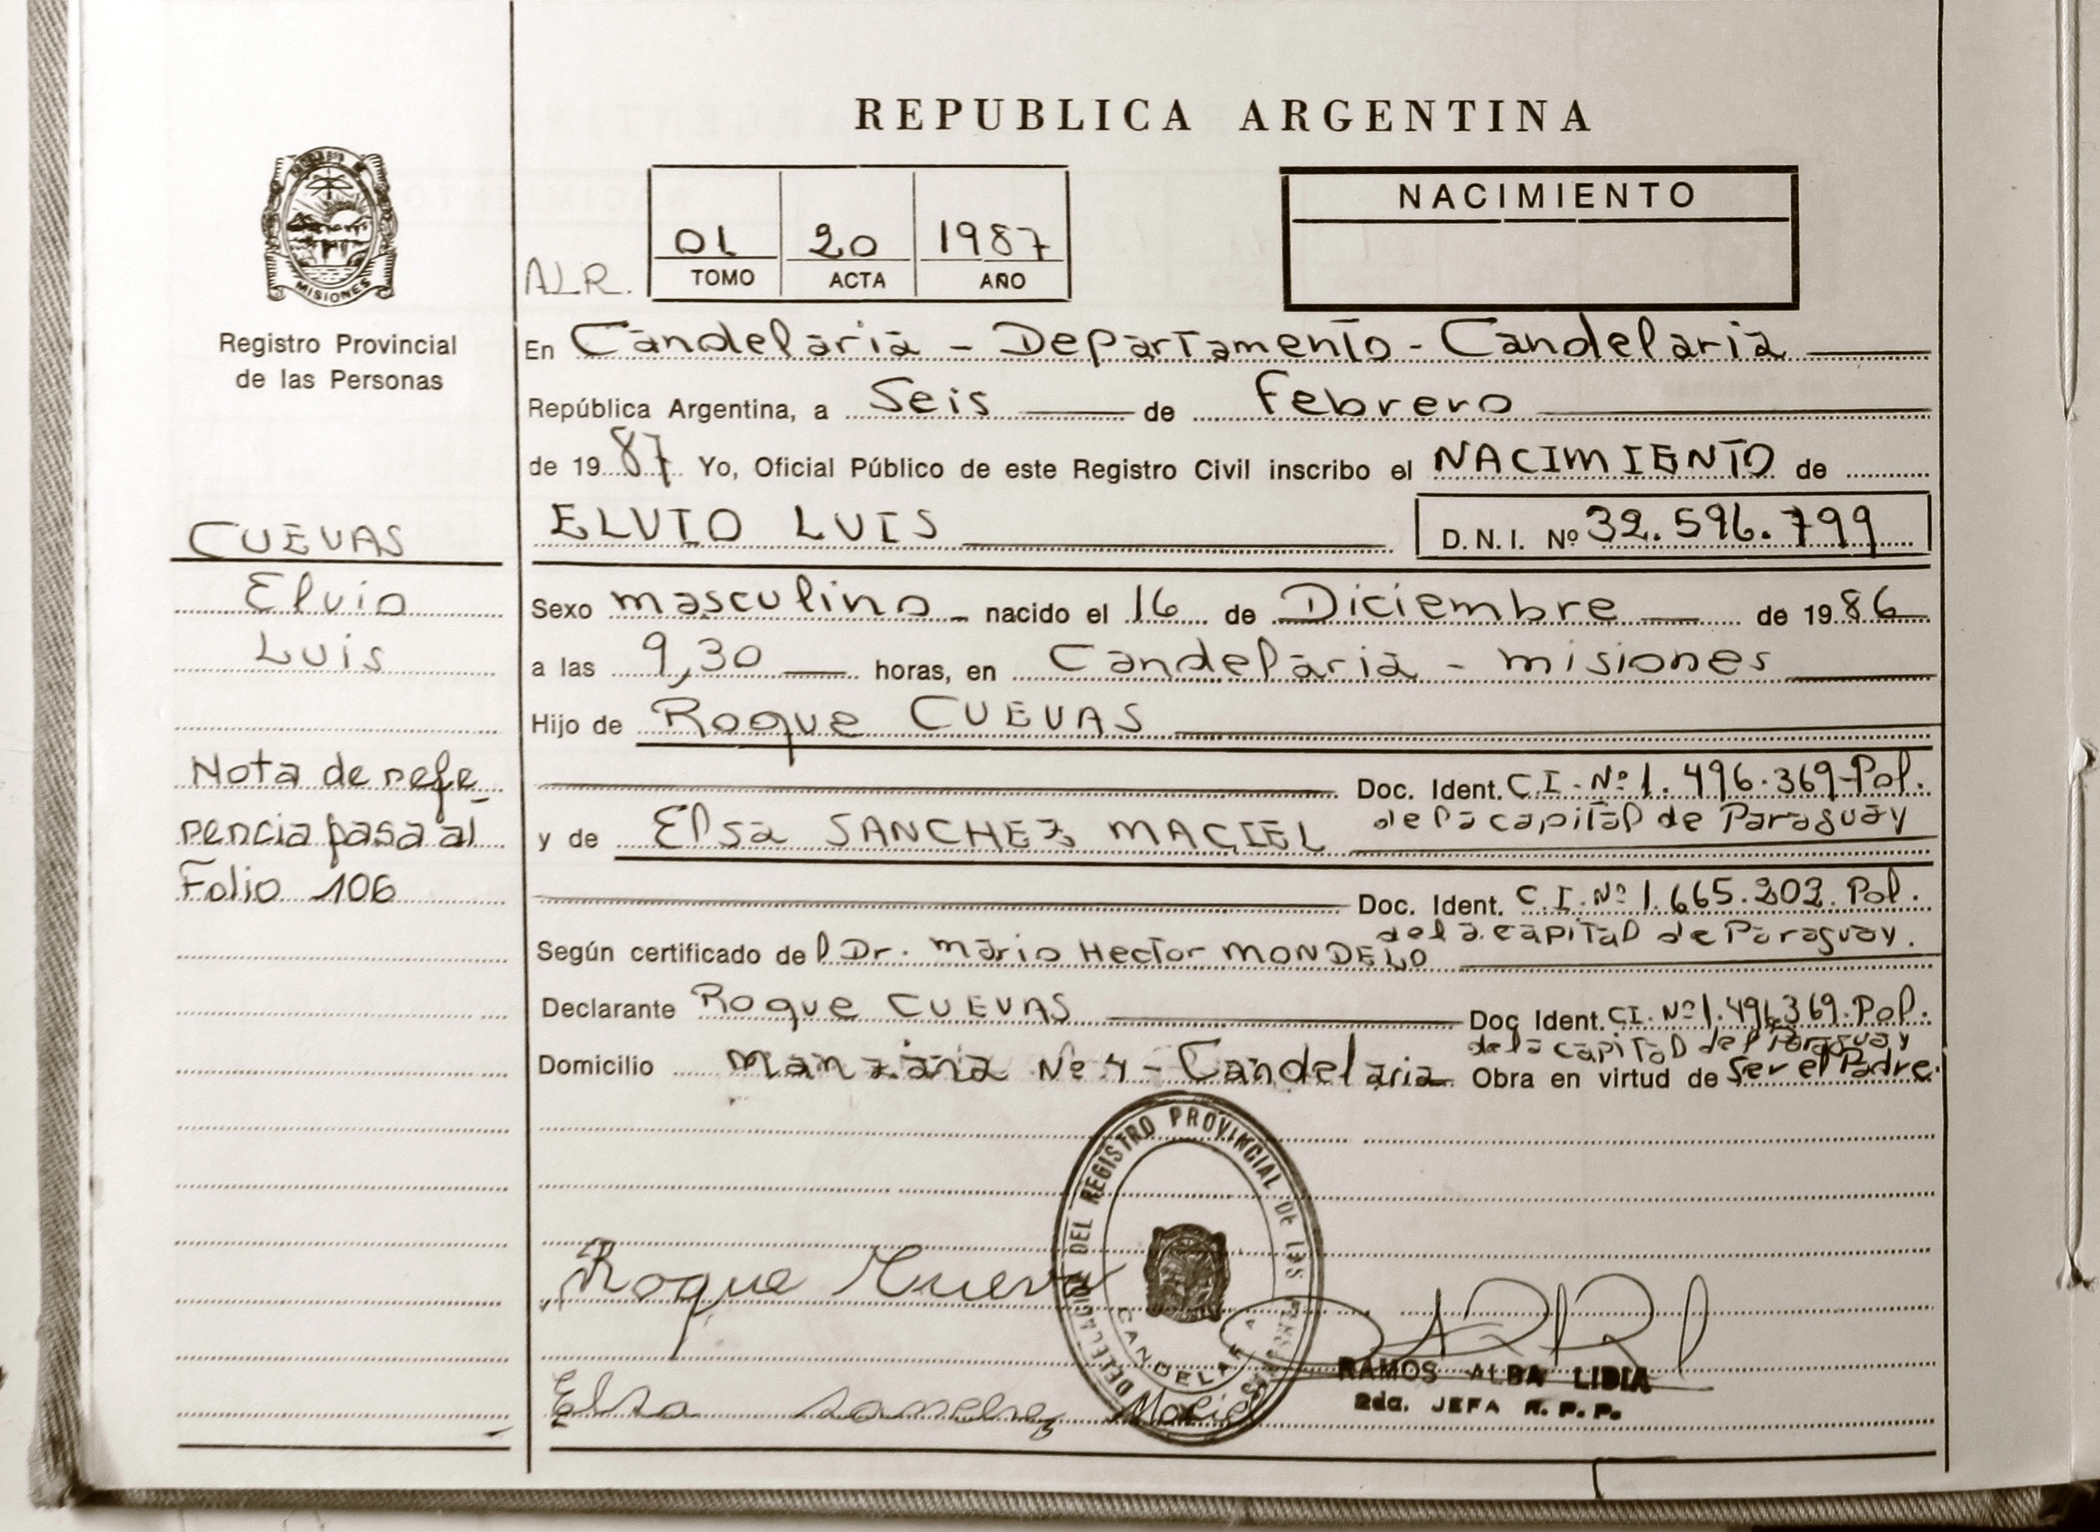 REPUBLICA ARGENTINA
MISIONES
Registro Provincial
de las Personas
A.L.R.
01 20 1987
TOMO ACTA AÑO
NACIMIENTO
En Candelaria - Departamento - Candelaria
República Argentina, a Seis de Febrero
de 1987 Yo, Oficial Público de este Registro Civil inscribo el NACIMIENTO de
ELVIO LUIS D.N.I. Nº 32.596.799
Sexo masculino nacido el 16 de Diciembre de 1986
a las 9,30 horas, en Candelaria - misiones
Hijo de Roque CUEVAS
Doc. Ident. C.I. Nº 1.496.369 Pol.
de la capital de Paraguay
y de Elsa SANCHEZ MACIEL
Doc. Ident. C.I. Nº 1.665.202. Pol.
de la capital de Paraguay.
Según certificado del Dr. Mario Hector MONDELO
Declarante Roque CUEVAS Doc Ident. CI. Nº 1.496.369. Pol.
de la capital del Paraguay
Domicilio manzana Nº 4 - Candelaria Obra en virtud de Ser el Padre.
CUEVAS
Elvio
Luis
Nota de refe
rencia pasa al
Folio 106
DELEGACION DEL REGISTRO PROVINCIAL DE LAS PERSONAS
CANDELARIA
Roque Cueva
Elsa sanchez Maciel
RAMOS ALBA LIDIA
2da. JEFA R.P.P.